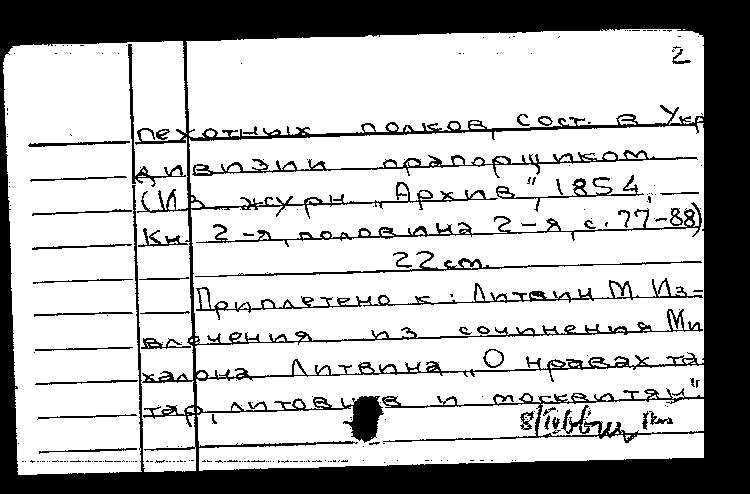 2
пехотных полков, сост. в Укр
дивизии прапорщиком.
(Из журн. „Архив“, 1854,
Кн. 2-я, половина 2-я, с. 77-88)
22 см.
Приплетено к: Литвин М. Из=
влечения из сочинения Ми
халона Литвина „О нравах та-
тар, литовцев и москвитян“.